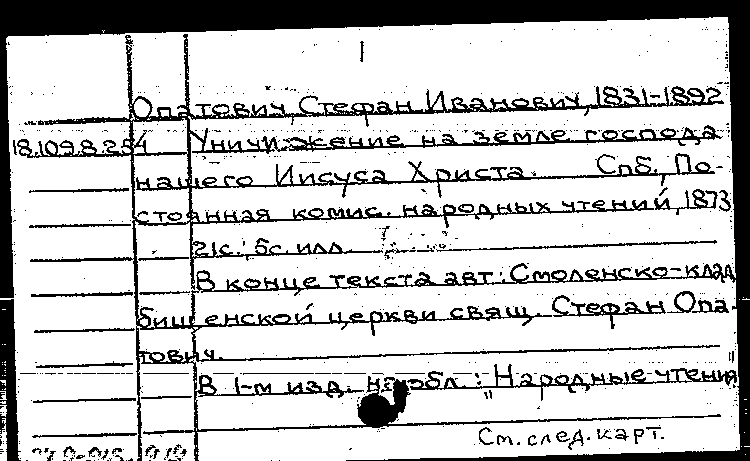 Опатович, Стефан Иванович, 1831-1892
18.109.8.254 Уничижение на земле господа
нашего Иисуса Христа. Спб., По-
стоянная комис. народных чтений, 1873
21с.; 5с. илл.
В конце текста авт.: Смоленско-клад
бищенской церкви свящ. Стефан Опа-
тович.
В 1-м изд. на обл.: "Народные чтения"
См. след. карт.